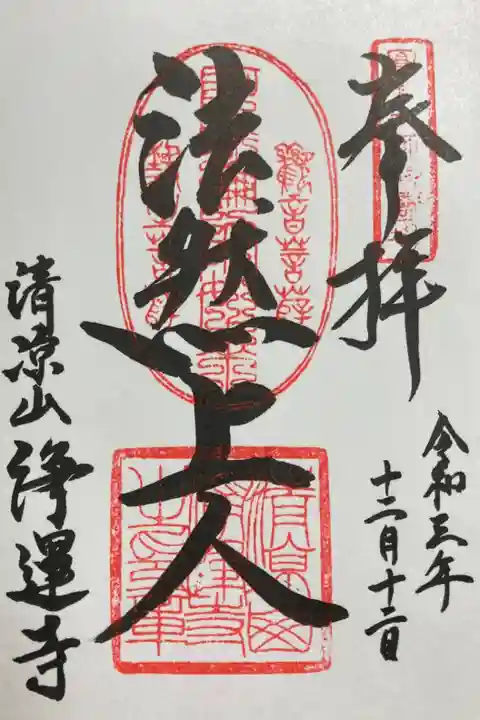 奉拝
令和三年
十二月十二日
法然上人
觀音菩薩
清涼山 浄運寺